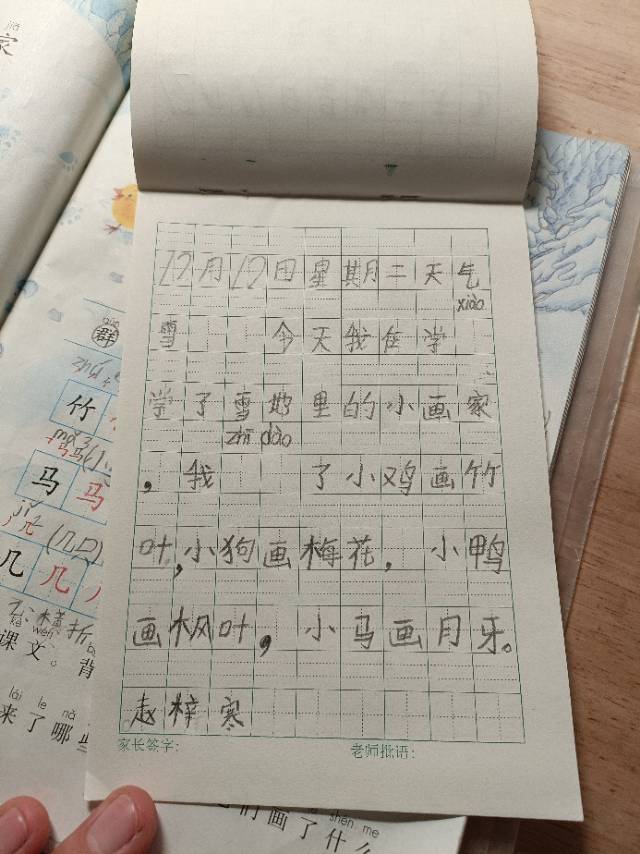 12月12日星期二天气
xiào
雪 今天我在学
学了雪地里的小画家
zhī dào
，我 了小鸡画竹
叶，小狗画梅花，小鸭
画枫叶，小马画月牙。
赵梓寒
家长签字： 老师批语：
jiā
家
qún
群
竹
马 马
jǐ
几 (几口)
几 几
横折
kè wén
课文。背
lái le nǎ
来了哪些
shén me
们画了什么